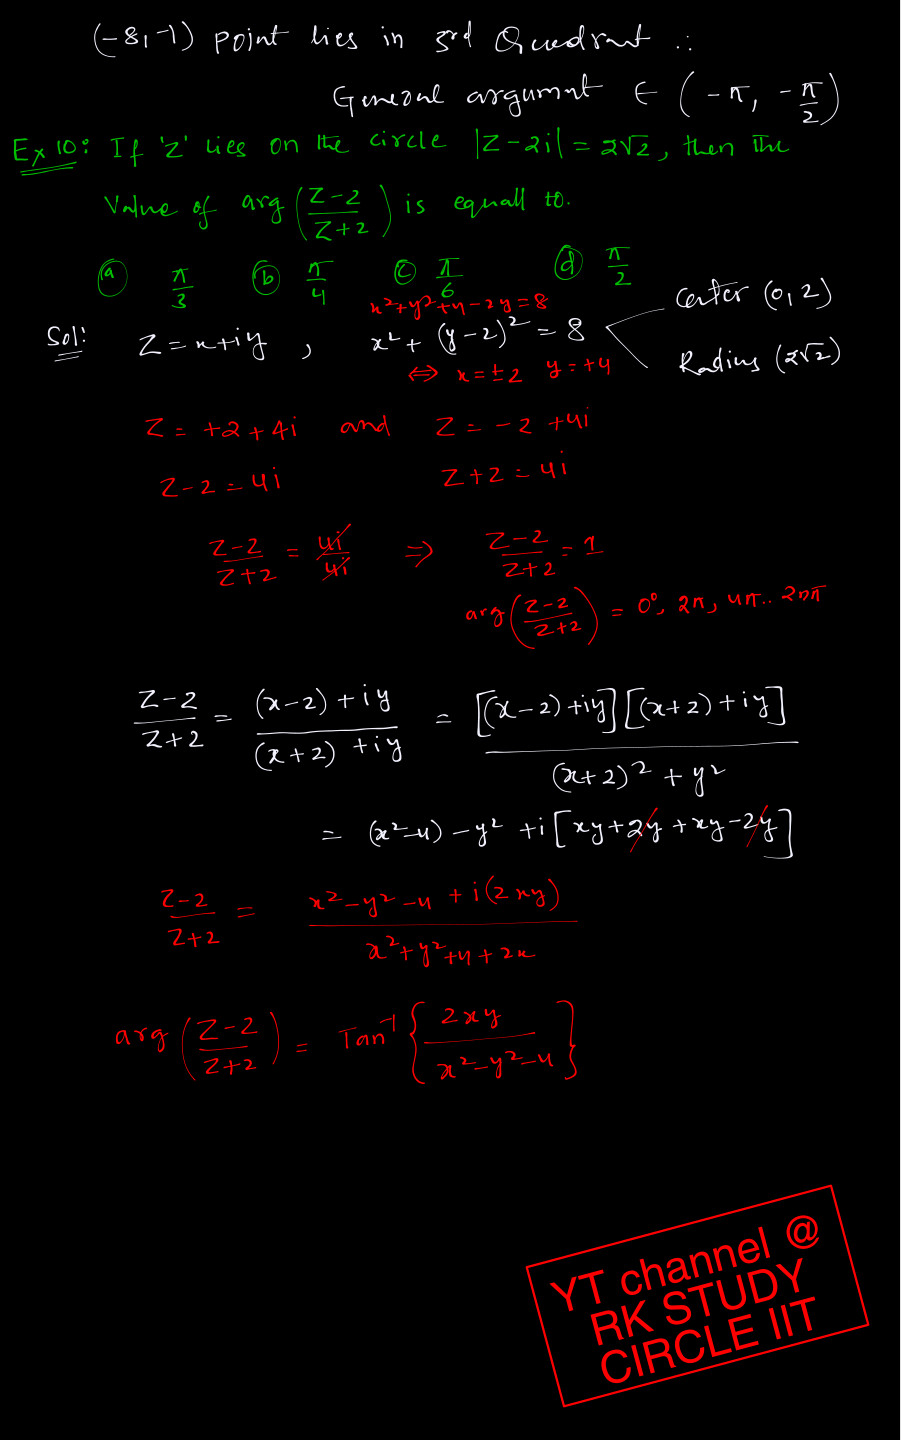 (-8,-1) point lies in 3rd Quadrant ∴
General argument ∈ (-π, -π/2)
Ex 10: If 'z' lies on the circle |z-2i| = 2√2, then the
Value of arg((z-2)/(z+2)) is equall to.
(a) π/3 (b) π/4 (c) π/6 (d) π/2
x²+y²+4-2y=8
Sol: z = x+iy , x²+(y-2)² = 8
Center (0,2)
Radius (2√2)
⇔ x=±2 y=+4
z = +2+4i and z = -2+4i
z-2 = 4i z+2 = 4i
(z-2)/(z+2) = 4i/4i ⇒ (z-2)/(z+2) = 1
arg((z-2)/(z+2)) = 0°, 2π, 4π.. 2nπ
(z-2)/(z+2) = ((x-2)+iy)/((x+2)+iy) = [(x-2)+iy][(x+2)+iy]/((x+2)²+y²)
= (x²-4)-y² +i[xy+2y+xy-2y]
(z-2)/(z+2) = (x²-y²-4+i(2xy))/(x²+y²+4+2x)
arg((z-2)/(z+2)) = Tan⁻¹{2xy/(x²-y²-4)}
YT channel @
RK STUDY
CIRCLE IIT